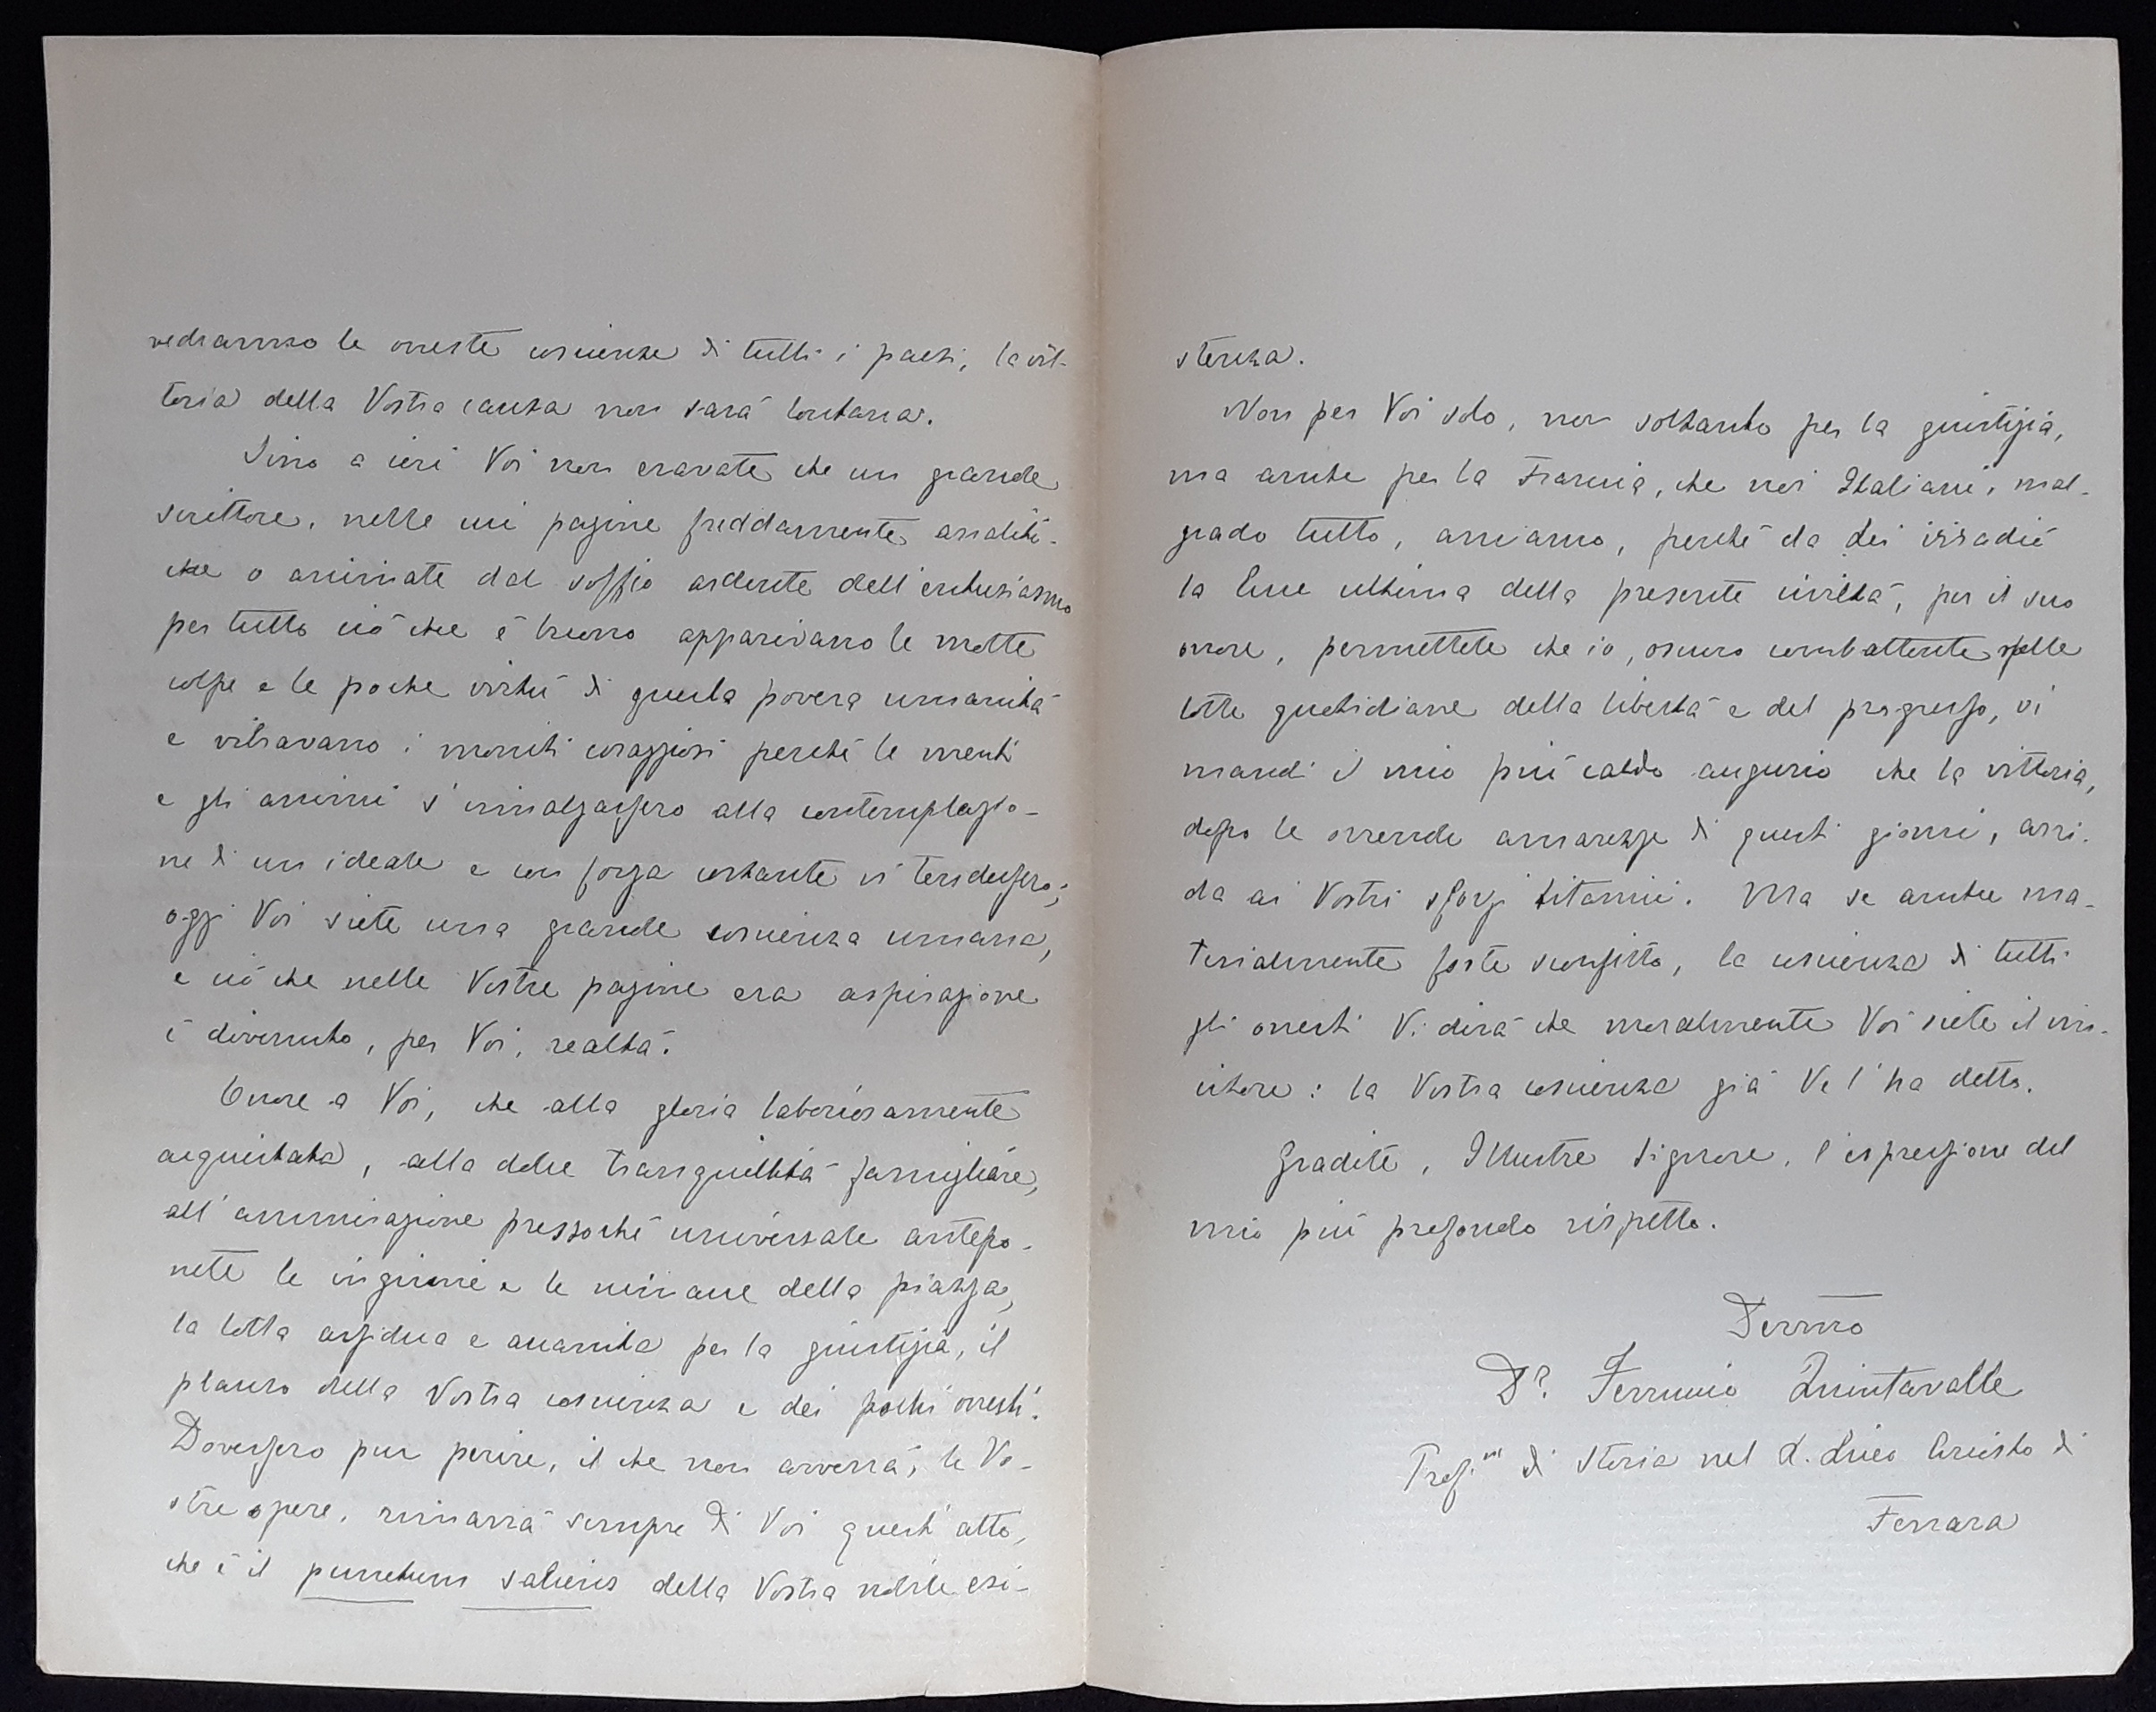 vedranno le oneste coscienze di tutti i paesi, la vit-
toria della Vostra causa non sarà lontana.
Sino a ieri Voi non eravate che un grande
scrittore, nelle cui pagine freddamente analiti-
che o animate dal soffio ardente dell'entusiasmo
per tutto ciò che è buono apparivano le molte
colpe e le poche virtù di questa povera umanità
e vibravano i moniti coraggiosi perché le menti
e gli animi s'innalzassero alla contemplazio-
ne di un ideale e con forza costante vi tendessero;
oggi Voi siete una grande coscienza umana,
e ciò che nelle Vostre pagine era aspirazione
è divenuto, per Voi, realtà.
Onore a Voi, che alla gloria laboriosamente
acquistata, alla dolce tranquillità famigliare,
all'ammirazione pressoché universale antepo-
nete le ingiurie e le minacce della piazza,
la lotta assidua e accanita per la giustizia, il
plauso della Vostra coscienza e dei pochi onesti.
Dovessero pur perire, il che non avverrà, le Vo-
stre opere, rimarrà sempre di Voi quest'atto,
che è il punctum saliens della Vostra nobile esi-
stenza.
Non per Voi solo, non soltanto per la giustizia,
ma anche per la Francia, che noi Italiani, mal-
grado tutto, amiamo, perché da Lei irradiò
la luce ultima della presente civiltà, per il suo
onore, permettete che io, oscuro combattente nelle
lotte quotidiane della libertà e del progresso, vi
mandi il mio più caldo augurio che la vittoria,
dopo le orrende amarezze di questi giorni, arri-
da ai Vostri sforzi titanici. Ma se anche ma-
terialmente foste sconfitto, la coscienza di tutti
gli onesti Vi dirà che moralmente Voi siete il vin-
citore: la Vostra coscienza già Ve l'ha detto.
Gradite, Illustre Signore, l'espressione del
mio più profondo rispetto.
Devmo
Dr. Ferruccio Quintavalle
Prof. di Storia nel R. Liceo Ariosto di
Ferrara